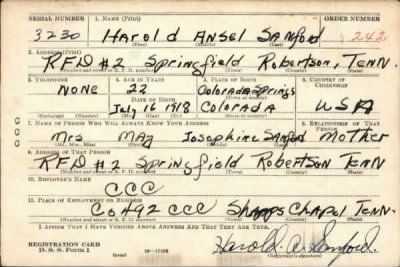 SERIAL NUMBER 1. NAME (Print) ORDER NUMBER
3230 HAROLD ANSEL SANFORD 242
(First) (Middle) (Last)
2. ADDRESS (Print)
RFD #2 Springfield Robertson, TENN.
(Number and street or R. F. D. number) (Town) (County) (State)
3. TELEPHONE 4. AGE IN YEARS 5. PLACE OF BIRTH 6. COUNTRY OF CITIZENSHIP
NONE 22 Colorado Springs
DATE OF BIRTH (Town or county)
July 16 1918 Colorado USA
(Exchange) (Number) (Mo.) (Day) (Yr.) (State or country)
7. NAME OF PERSON WHO WILL ALWAYS KNOW YOUR ADDRESS 8. RELATIONSHIP OF THAT PERSON
Mrs May Josephine Sanford Mother
(Mr., Mrs., Miss) (First) (Middle) (Last)
9. ADDRESS OF THAT PERSON
RFD #2 Springfield Robertson TENN
(Number and street or R. F. D. number) (Town) (County) (State)
10. EMPLOYER'S NAME
CCC
11. PLACE OF EMPLOYMENT OR BUSINESS
Co 492 CCC Chapel TENN.
(Number and street or R. F. D. number) (Town) (County) (State)
I AFFIRM THAT I HAVE VERIFIED ABOVE ANSWERS AND THAT THEY ARE TRUE.
REGISTRATION CARD
D. S. S. Form 1 (over) 16—17105 Harold A. Sanford.
(Registrant's signature)